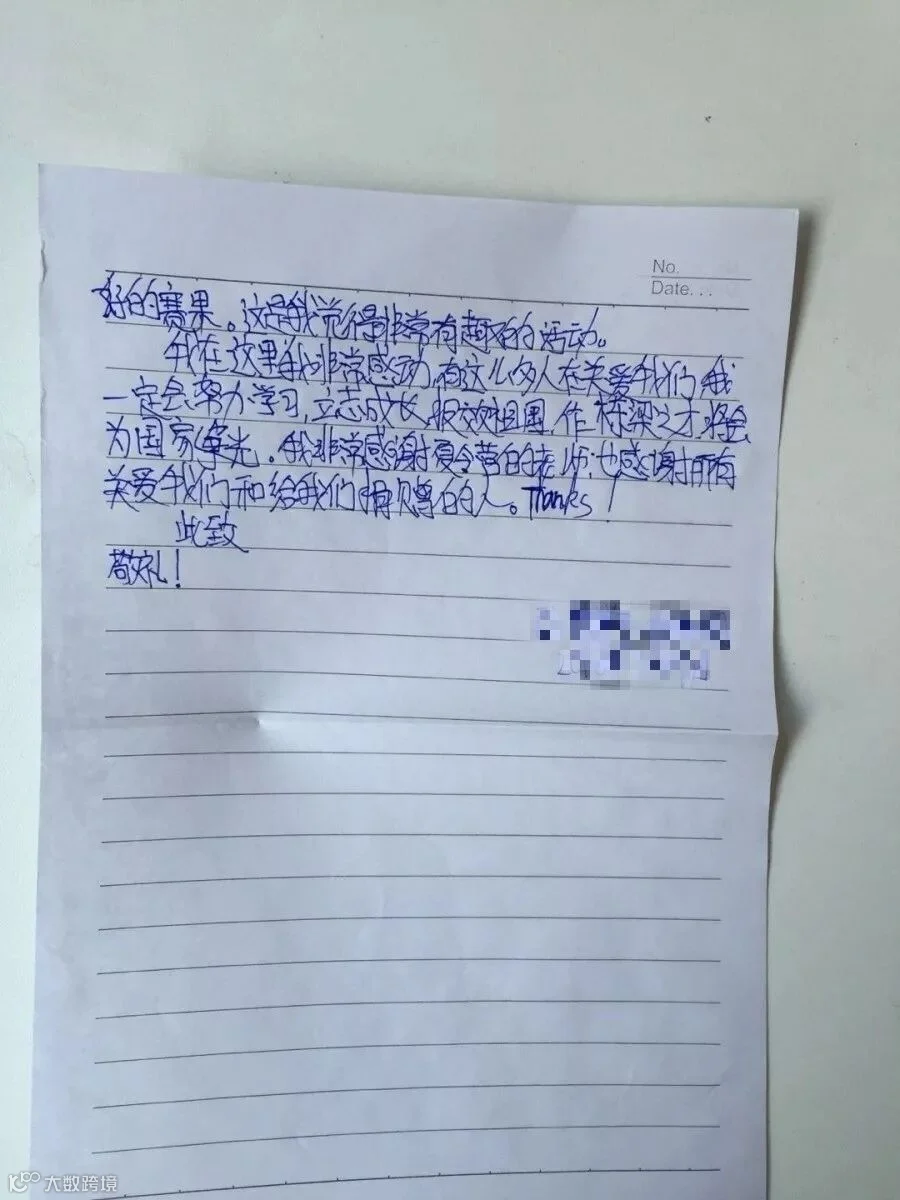 No.
Date...
好的赛果。这是我觉得非常有趣的活动。
我在这里我非常感动,有这么多人在关爱我们,我
一定会努力学习,立志成长,报效祖国,作栋梁之才,将会
为国家争光。我非常感谢夏令营的老师;也感谢所有
关爱我们和给我们捐贝赠的人。Thanks!
此致
敬礼!
大数跨境